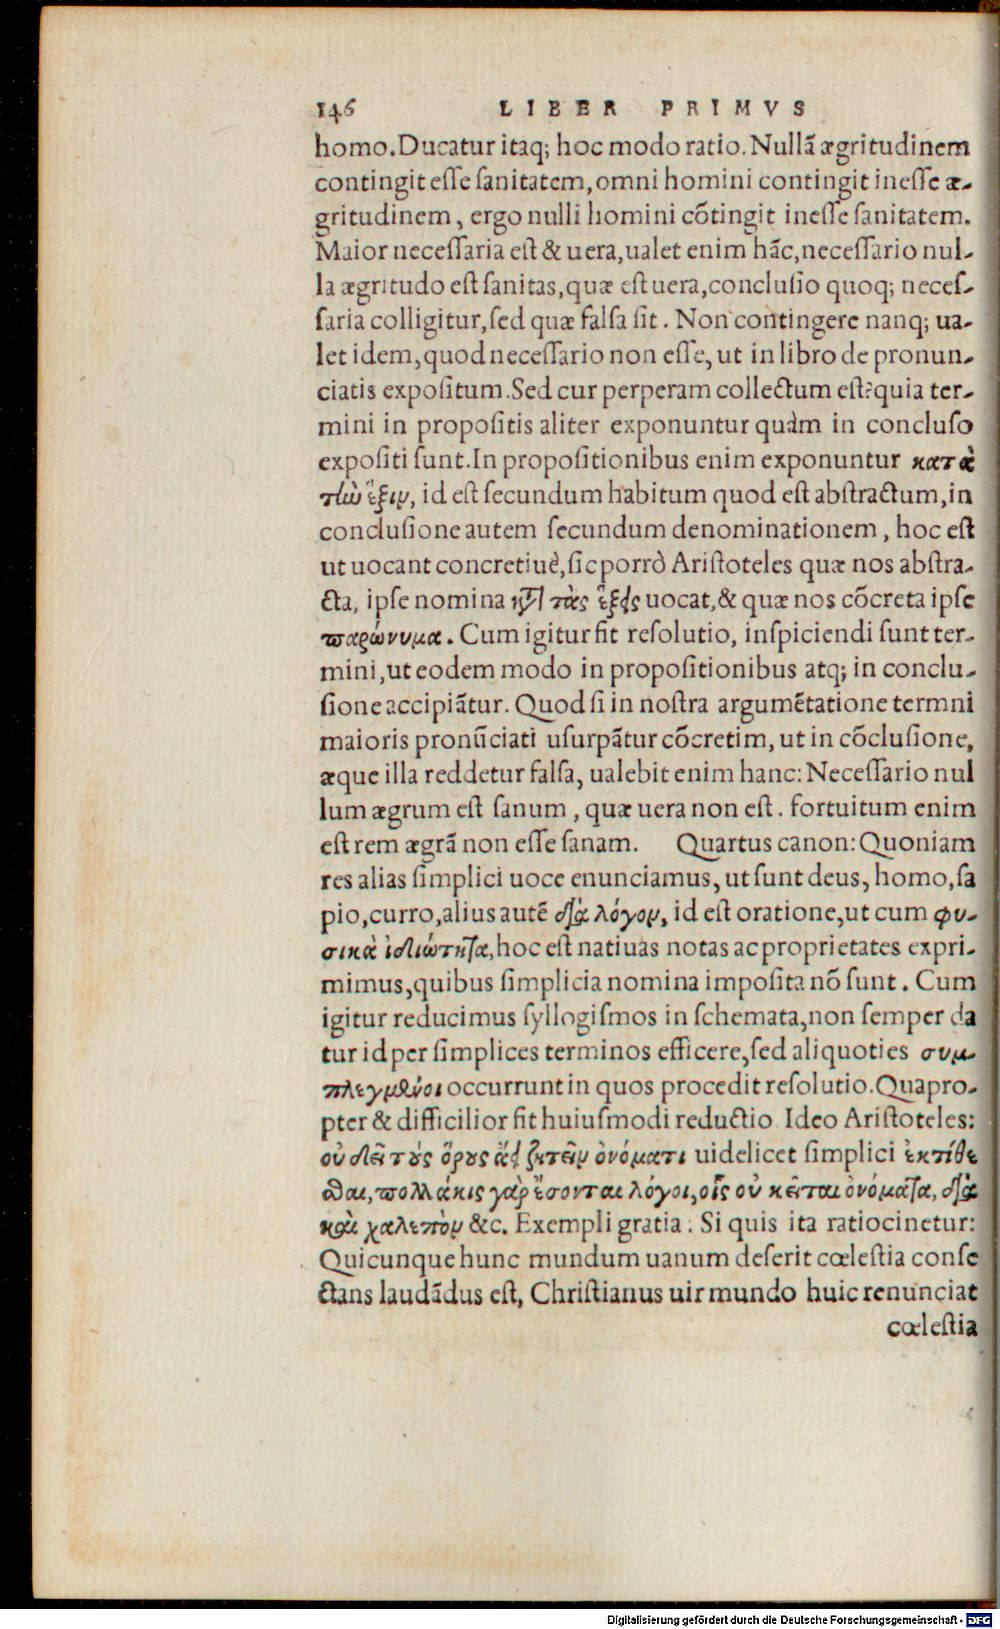 146 LIBER PRIMVS
homo. Ducatur itaq; hoc modo ratio. Nullā ægritudinem
contingit esse sanitatem, omni homini contingit inesse æ-
gritudinem, ergo nulli homini cōtingit inesse sanitatem.
Maior necessaria est & uera, ualet enim hāc, necessario nul-
la ægritudo est sanitas, quæ est uera, conclusio quoq; neces-
saria colligitur, sed quæ falsa sit. Non contingere nanq; ua-
let idem, quod necessario non esse, ut in libro de pronun-
ciatis expositum. Sed cur perperam collectum est? quia ter-
mini in propositis aliter exponuntur quàm in concluso
expositi sunt. In propositionibus enim exponuntur κατὰ
τὴν ἕξιν, id est secundum habitum quod est abstractum, in
conclusione autem secundum denominationem, hoc est
ut uocant concretiuè, sic porrò Aristoteles quæ nos abstra-
cta, ipse nomina κατὰ τὰς ἕξεις uocat, & quæ nos cōcreta ipse
παρώνυμα. Cum igitur fit resolutio, inspiciendi sunt ter-
mini, ut eodem modo in propositionibus atq; in conclu-
sione accipiātur. Quod si in nostra argumētatione termni
maioris pronūciati usurpātur cōcretim, ut in cōclusione,
æque illa reddetur falsa, ualebit enim hanc: Necessario nul
lum ægrum est sanum, quæ uera non est. fortuitum enim
est rem ægrā non esse sanam. Quartus canon: Quoniam
res alias simplici uoce enunciamus, ut sunt deus, homo, sa
pio, curro, alius autē διὰ λόγον, id est oratione, ut cum φυ-
σικὰ ἰδιώτητα, hoc est natiuas notas ac proprietates expri-
mimus, quibus simplicia nomina imposita nō sunt. Cum
igitur reducimus syllogismos in schemata, non semper da
tur id per simplices terminos efficere, sed aliquoties συμ-
πλεγμένοι occurrunt in quos procedit resolutio. Quapro-
pter & difficilior fit huiusmodi reductio Ideo Aristoteles:
οὐ δεῖ τοὺς ὅρους ἀεὶ ζητεῖν ὀνόματι uidelicet simplici ἐκτίθε
σθαι, πολλάκις γὰρ ἔσονται λόγοι, οἷς οὐ κεῖται ὀνόματα, διὸ
καὶ χαλεπὸν &c. Exempli gratia. Si quis ita ratiocinetur:
Quicunque hunc mundum uanum deserit cœlestia conse
ctans laudādus est, Christianus uir mundo huic renunciat
cœlestia
Digitalisierung gefördert durch die Deutsche Forschungsgemeinschaft - DFG